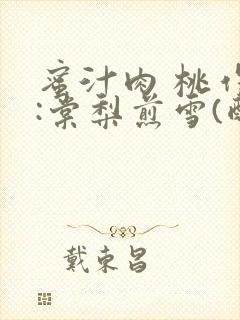 蜜汁肉桃作
:棠梨煎雪(
戴东昌